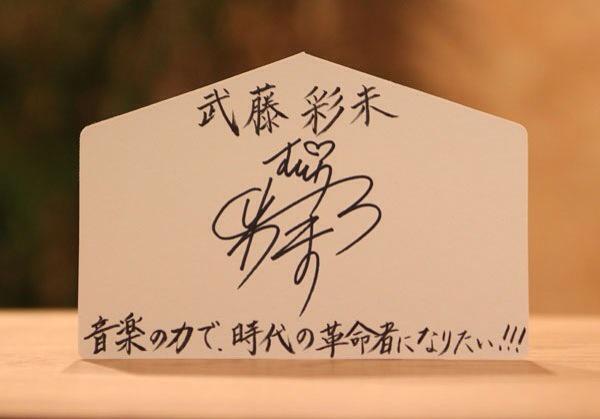 武藤 彩未
音楽の力で、時代の革命者になりたい!!!